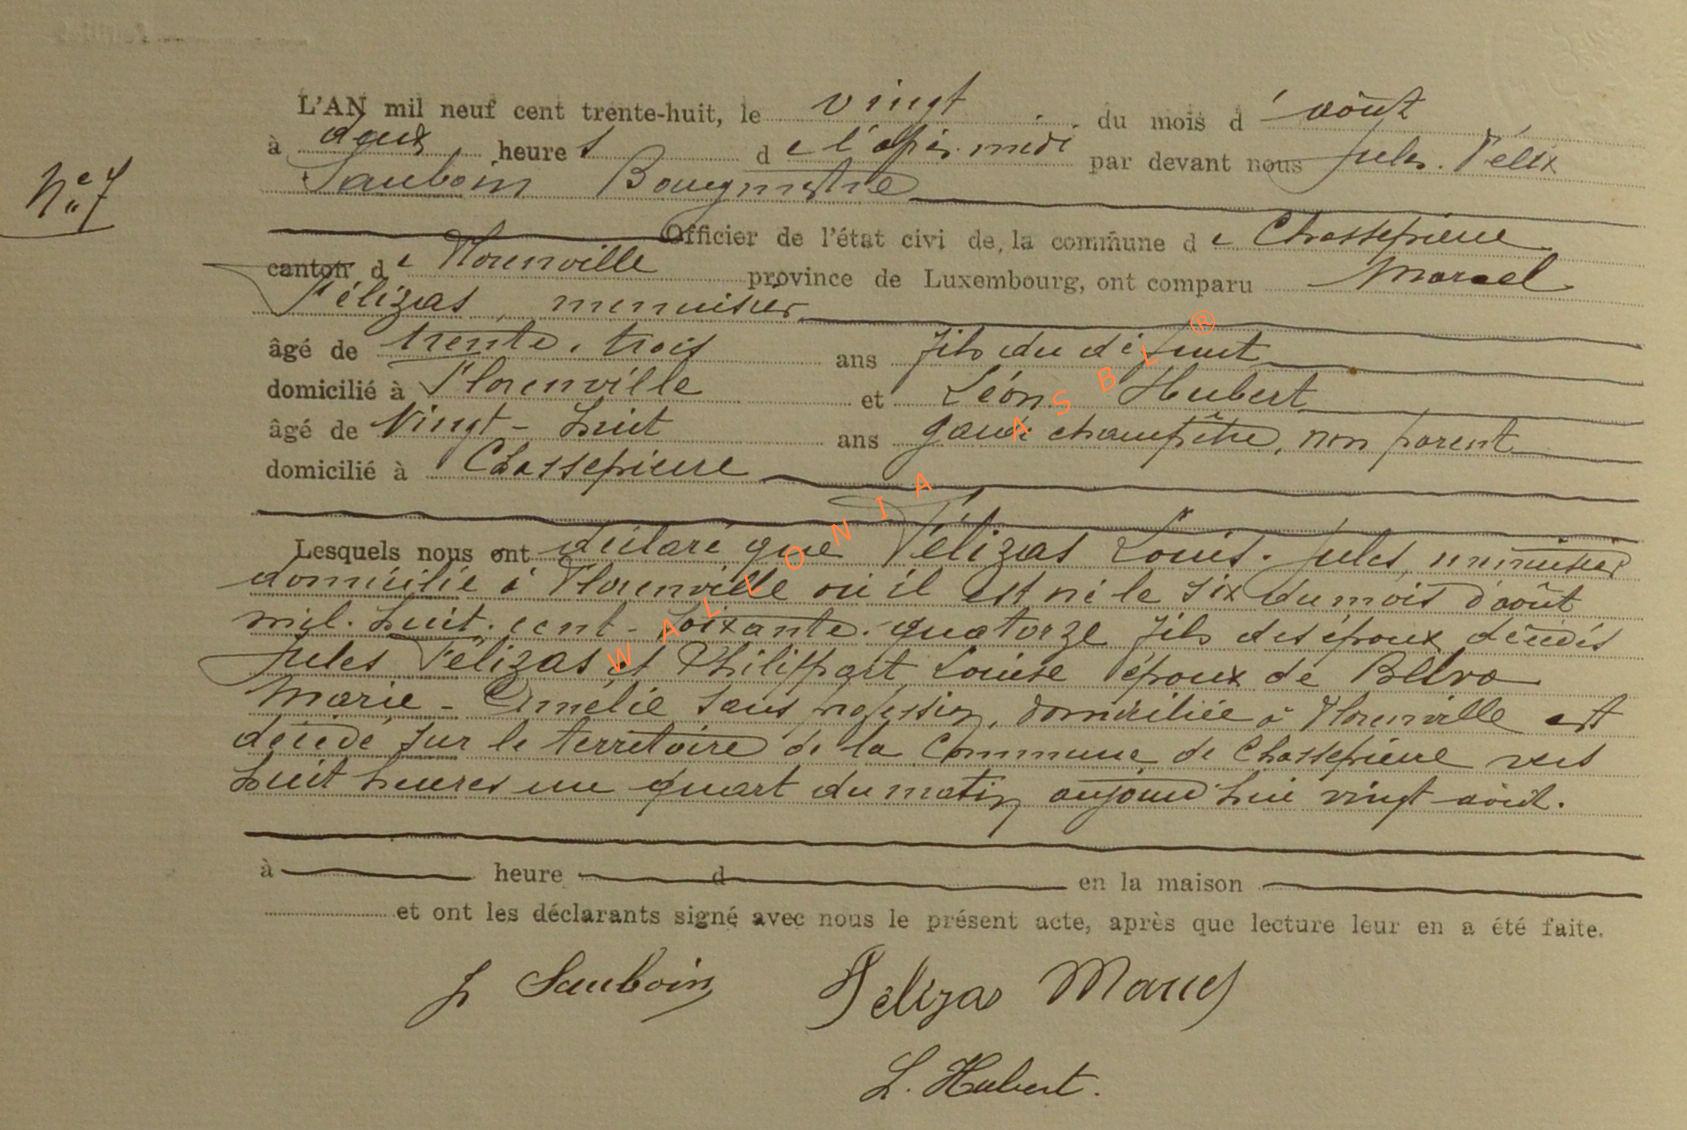 L'AN mil neuf cent trente-huit, le vingt du mois d' août
à deux heures de l'après-midi par devant nous Jules Félix
N° 7
Sauboin Bourgmestre
Officier de l'état civi de la commune de Chassepierre
canton de Florenville province de Luxembourg, ont comparu Marcel
Félizas, menuisier
âgé de trente-trois ans fils du défunt
domicilié à Florenville et Léon Hubert
âgé de Vingt-huit ans garde champêtre, non parent
domicilié à Chassepierre
Lesquels nous ont déclaré que Félizas Louis-Jules, menuisier
domicilié à Florenville où il est né le six du mois d'août
mil-huit-cent-soixante-quatorze fils des époux décédés
Jules Félizas et Philippart Louise époux de
Marie-Amélie sans profession, domiciliée à Florenville est
décédé sur le territoire de la Commune de Chassepierre vers
huit heures un quart du matin aujourd'hui vingt août.
à heure d en la maison
et ont les déclarants signé avec nous le présent acte, après que lecture leur en a été faite.
J Sauboin Félizas Marcel
L. Hubert.
WALLONIA ASBL ®